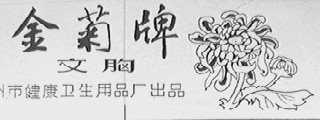 金菊牌
文胸
州市健康卫生用品厂出品